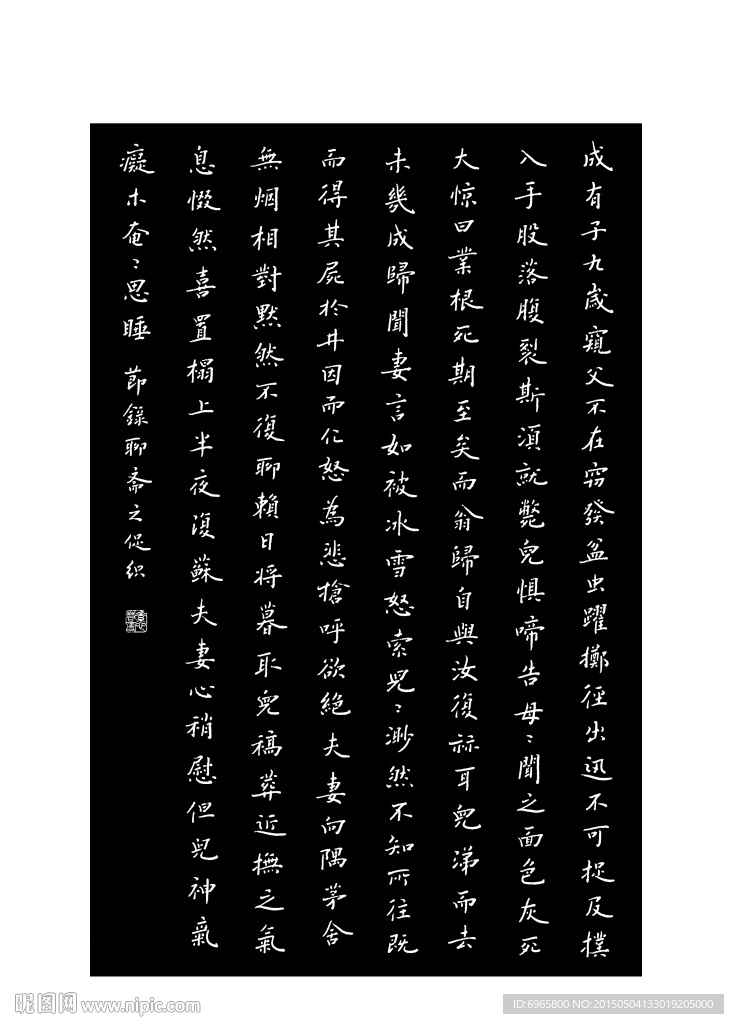 成有子九歲窺父不在窃發盆虫躍擲徑出迅不可捉及撲
入手股落腹裂斯湏就斃兒惧啼告母〻聞之面色灰死
大惊曰業根死期至矣而翁歸自與汝復祘耳兒涕而去
未幾成歸聞妻言如被冰雪怒索兒〻渺然不知所往既
而得其屍於井因而化怒為悲搶呼欲絶夫妻向隅茅舍
無烟相對黙然不復聊賴日将暮取兒稿葬近撫之氣
息惙然喜置榻上半夜復蘇夫妻心稍慰但兒神氣
癡木奄〻思睡 節錄聊斋之促织
昵图网 www.nipic.com
ID:6965800 NO:20150504133019205000